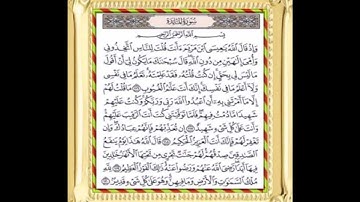 سورة المائدة
بسم الله الرحمن الرحيم
وإذ قال الله يعيسى ابن مريم ءأنت قلت للناس اتخذوني
وأمي إلهين من دون الله قال سبحنك ما يكون لي أن أقول
ما ليس لي بحق إن كنت قلته فقد علمته تعلم ما في نفسي
ولا أعلم ما في نفسك إنك أنت علم الغيوب ما قلت لهم
إلا ما أمرتني به أن اعبدوا الله ربي وربكم وكنت عليهم
شهيدا ما دمت فيهم فلما توفيتني كنت أنت الرقيب عليهم
وأنت على كل شيء شهيد إن تعذبهم فإنهم عبادك وإن
تغفر لهم فإنك أنت العزيز الحكيم قال الله هذا يوم ينفع
الصدقين صدقهم لهم جنت تجري من تحتها الأنهر خلدين
فيها أبدا رضي الله عنهم ورضوا عنه ذلك الفوز العظيم لله
ملك السموت والأرض وما فيهن وهو على كل شيء قدير